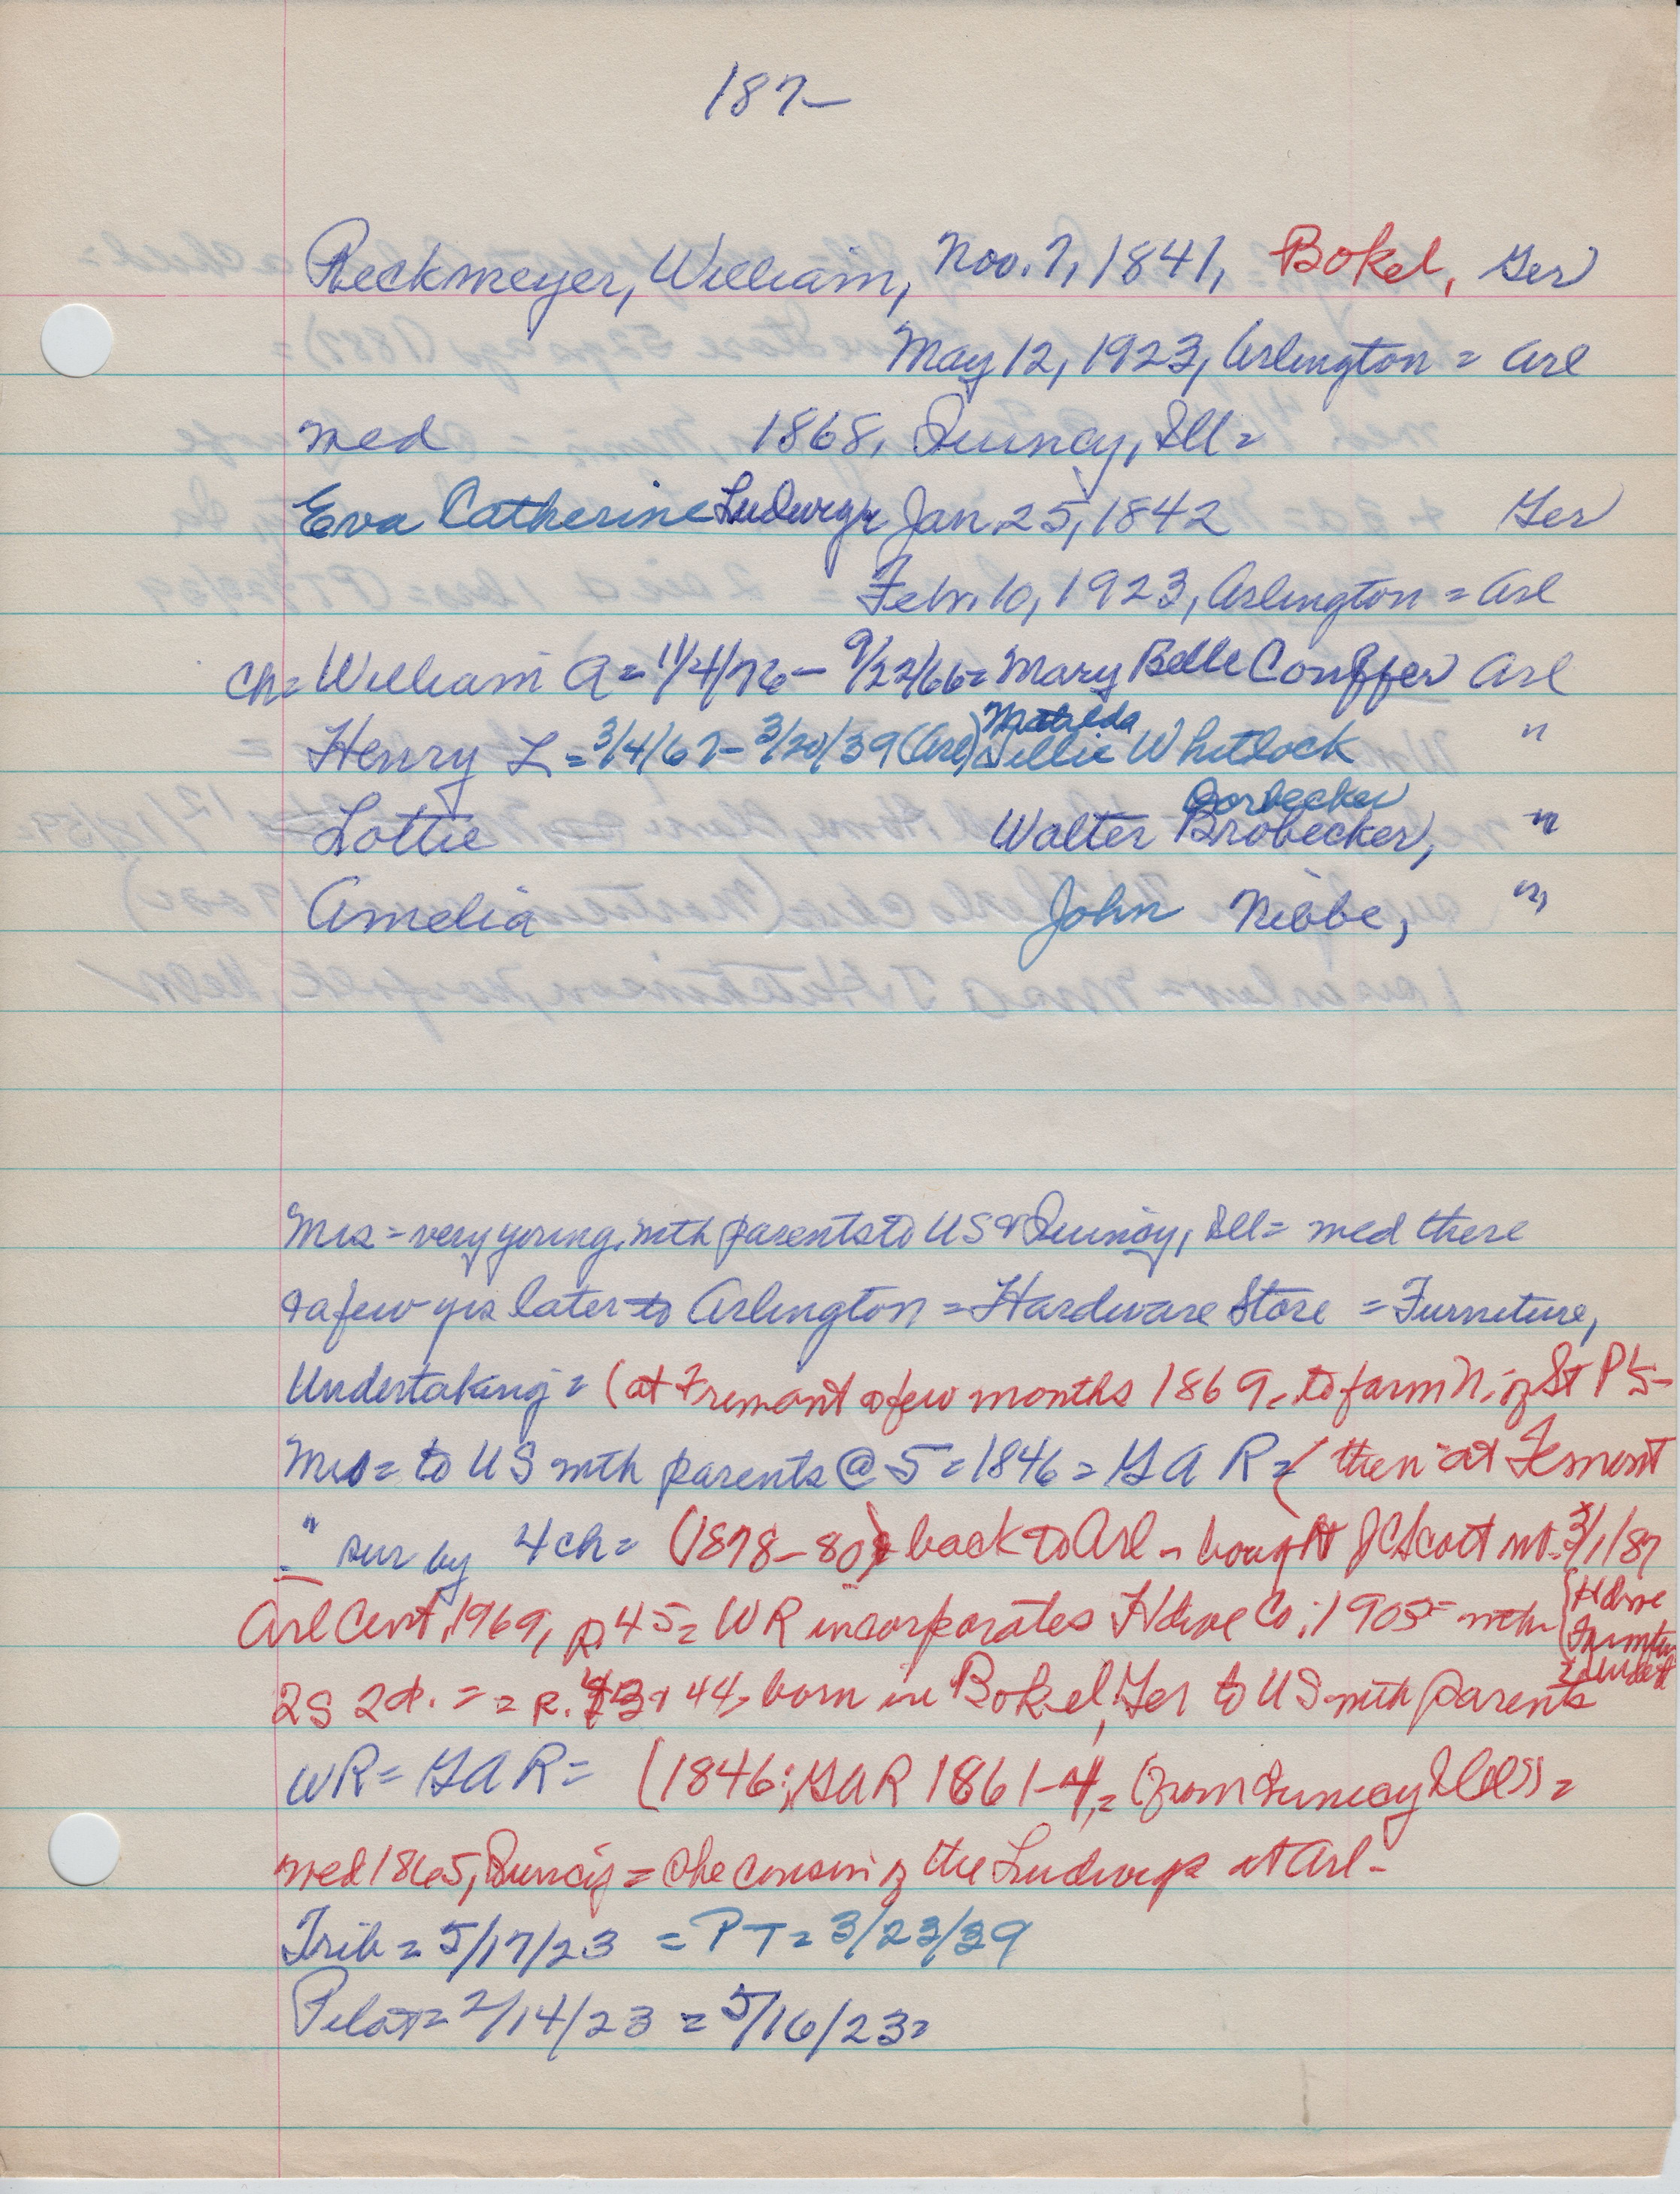 187-
Reckmeyer, William, Nov. 7, 1841, Bokel, Ger
May 12, 1923, Arlington = Arl
med 1868, Quincy, Ill =
Eva Catherine Ludwig Jan 25, 1842 Ger
Feb. 10, 1923, Arlington = Arl
Ch = William A = 11/4/76 - 9/22/66 = Mary Belle Conffer Arl
Matilda
Henry L = 3/4/67 - 3/20/39 (Arl) Nellie Whitlock "
Dorbecker
Lottie Walter Brobecker, "
Amelia John Nibbe, "
Mrs = very young, with parents to US & Quincy, Ill = med there
& a few yrs later to Arlington = Hardware Store = Furniture,
Undertaking = (at Fremont a few months 1869, to farm N. of St P's -
Mrs = to US with parents @ 5 = 1846 = GAR = (then at Fremont
" sur by 4 ch = (1878-80) = back to Arl - bought J C Scott int. 3/1/87
Arl Cent, 1969, p. 45 = WR incorporates Hdwe Co, 1905 = with {Hdwe
Furniture
2S 2d. = = p. 43 & 44, born in Bokel, Ger to US with parents
WR = GAR = (1846; GAR 1861-4, = (from Quincy Ills) =
med 1865, Quincy = she cousin of the Ludwigs at Arl -
Trib = 5/17/23 = PT = 3/23/39
Pilot = 2/14/23 = 5/16/23 =